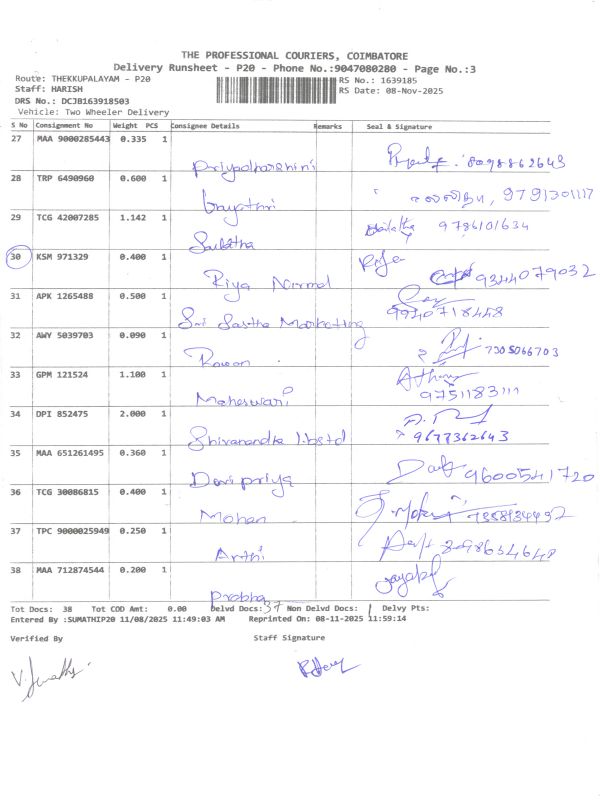 THE PROFESSIONAL COURIERS, COIMBATORE
Delivery Runsheet - P20 - Phone No.:9047080280 - Page No.:3
Route: THEKKUPALAYAM - P20 RS No.: 1639185
Staff: HARISH RS Date: 08-Nov-2025
DRS No.: DCJB163918503
Vehicle: Two Wheeler Delivery
S No Consignment No Weight PCS Consignee Details Remarks Seal & Signature
27 MAA 9000285443 0.335 1
Priyadharshini 8098862643
28 TRP 6490960 0.600 1
Gayathri 9791301117
29 TCG 42007285 1.142 1
9786101634
30 KSM 971329 0.400 1
Riya Nirmal 9344079032
31 APK 1265488 0.500 1
Sri Sastha Marketing 9940718448
32 AWY 5039703 0.090 1
7305066703
33 GPM 121524 1.100 1
Maheswari 9751183111
34 DPI 852475 2.000 1
9677362643
35 MAA 651261495 0.360 1
Devipriya 9600541720
36 TCG 30086815 0.400 1
Mohan
37 TPC 9000025949 0.250 1
Arthi
38 MAA 712874544 0.200 1
Prabha
Tot Docs: 38 Tot COD Amt: 0.00 Delvd Docs: 37 Non Delvd Docs: 1 Delvy Pts:
Entered By :SUMATHIP20 11/08/2025 11:49:03 AM Reprinted On: 08-11-2025 11:59:14
Verified By Staff Signature